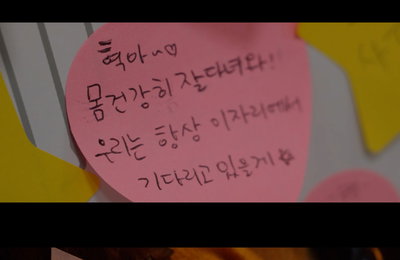 혁아~♡
몸건강히 잘다녀와!
우리는 항상 이자리에서
기다리고 있을게☆